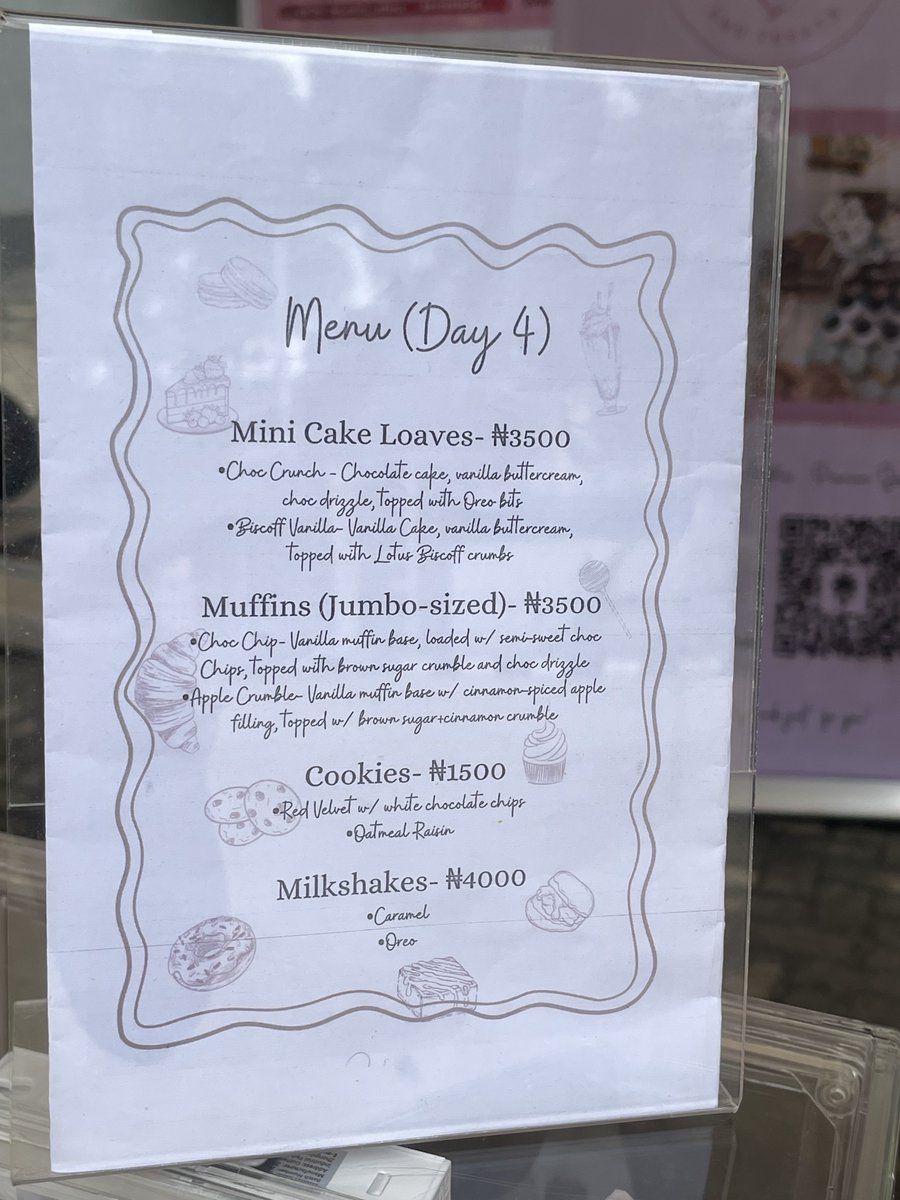 Menu (Day 4)
Mini Cake Loaves- ₦3500
•Choc Crunch - Chocolate cake, vanilla buttercream,
choc drizzle, topped with Oreo bits
•Biscoff Vanilla- Vanilla Cake, vanilla buttercream,
topped with Lotus Biscoff crumbs
Muffins (Jumbo-sized)- ₦3500
•Choc Chip- Vanilla muffin base, loaded w/ semi-sweet choc
Chips, topped with brown sugar crumble and choc drizzle
•Apple Crumble- Vanilla muffin base w/ cinnamon-spiced apple
filling, topped w/ brown sugar+cinnamon crumble
Cookies- ₦1500
•Red Velvet w/ white chocolate chips
•Oatmeal Raisin
Milkshakes- ₦4000
•Caramel
•Oreo